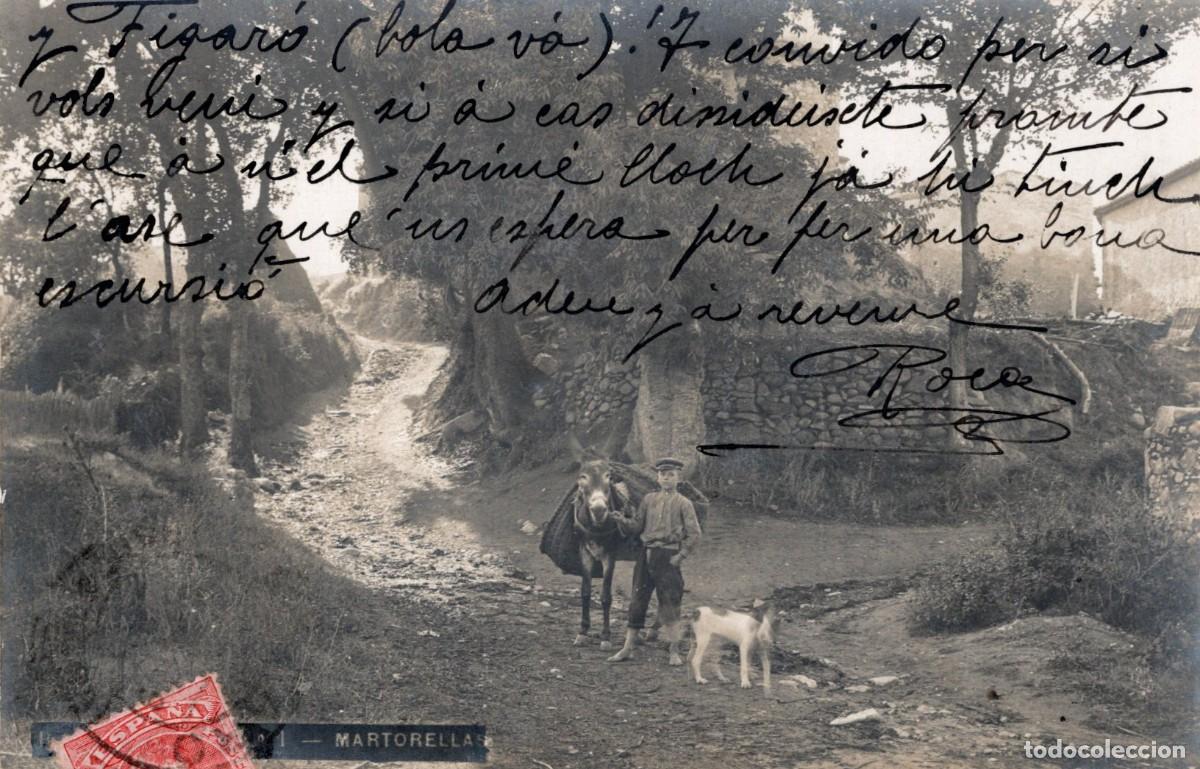 y Figaró (bola vá)! T convido per si
vols veni y si á cas dissideisete prombte
que á n'el primé lloch já hi tinch
l'ase que'ns espera per fer una bona
escursió Adeu y á reveure
Roca
ESPAÑA
I — MARTORELLAS
todocoleccion